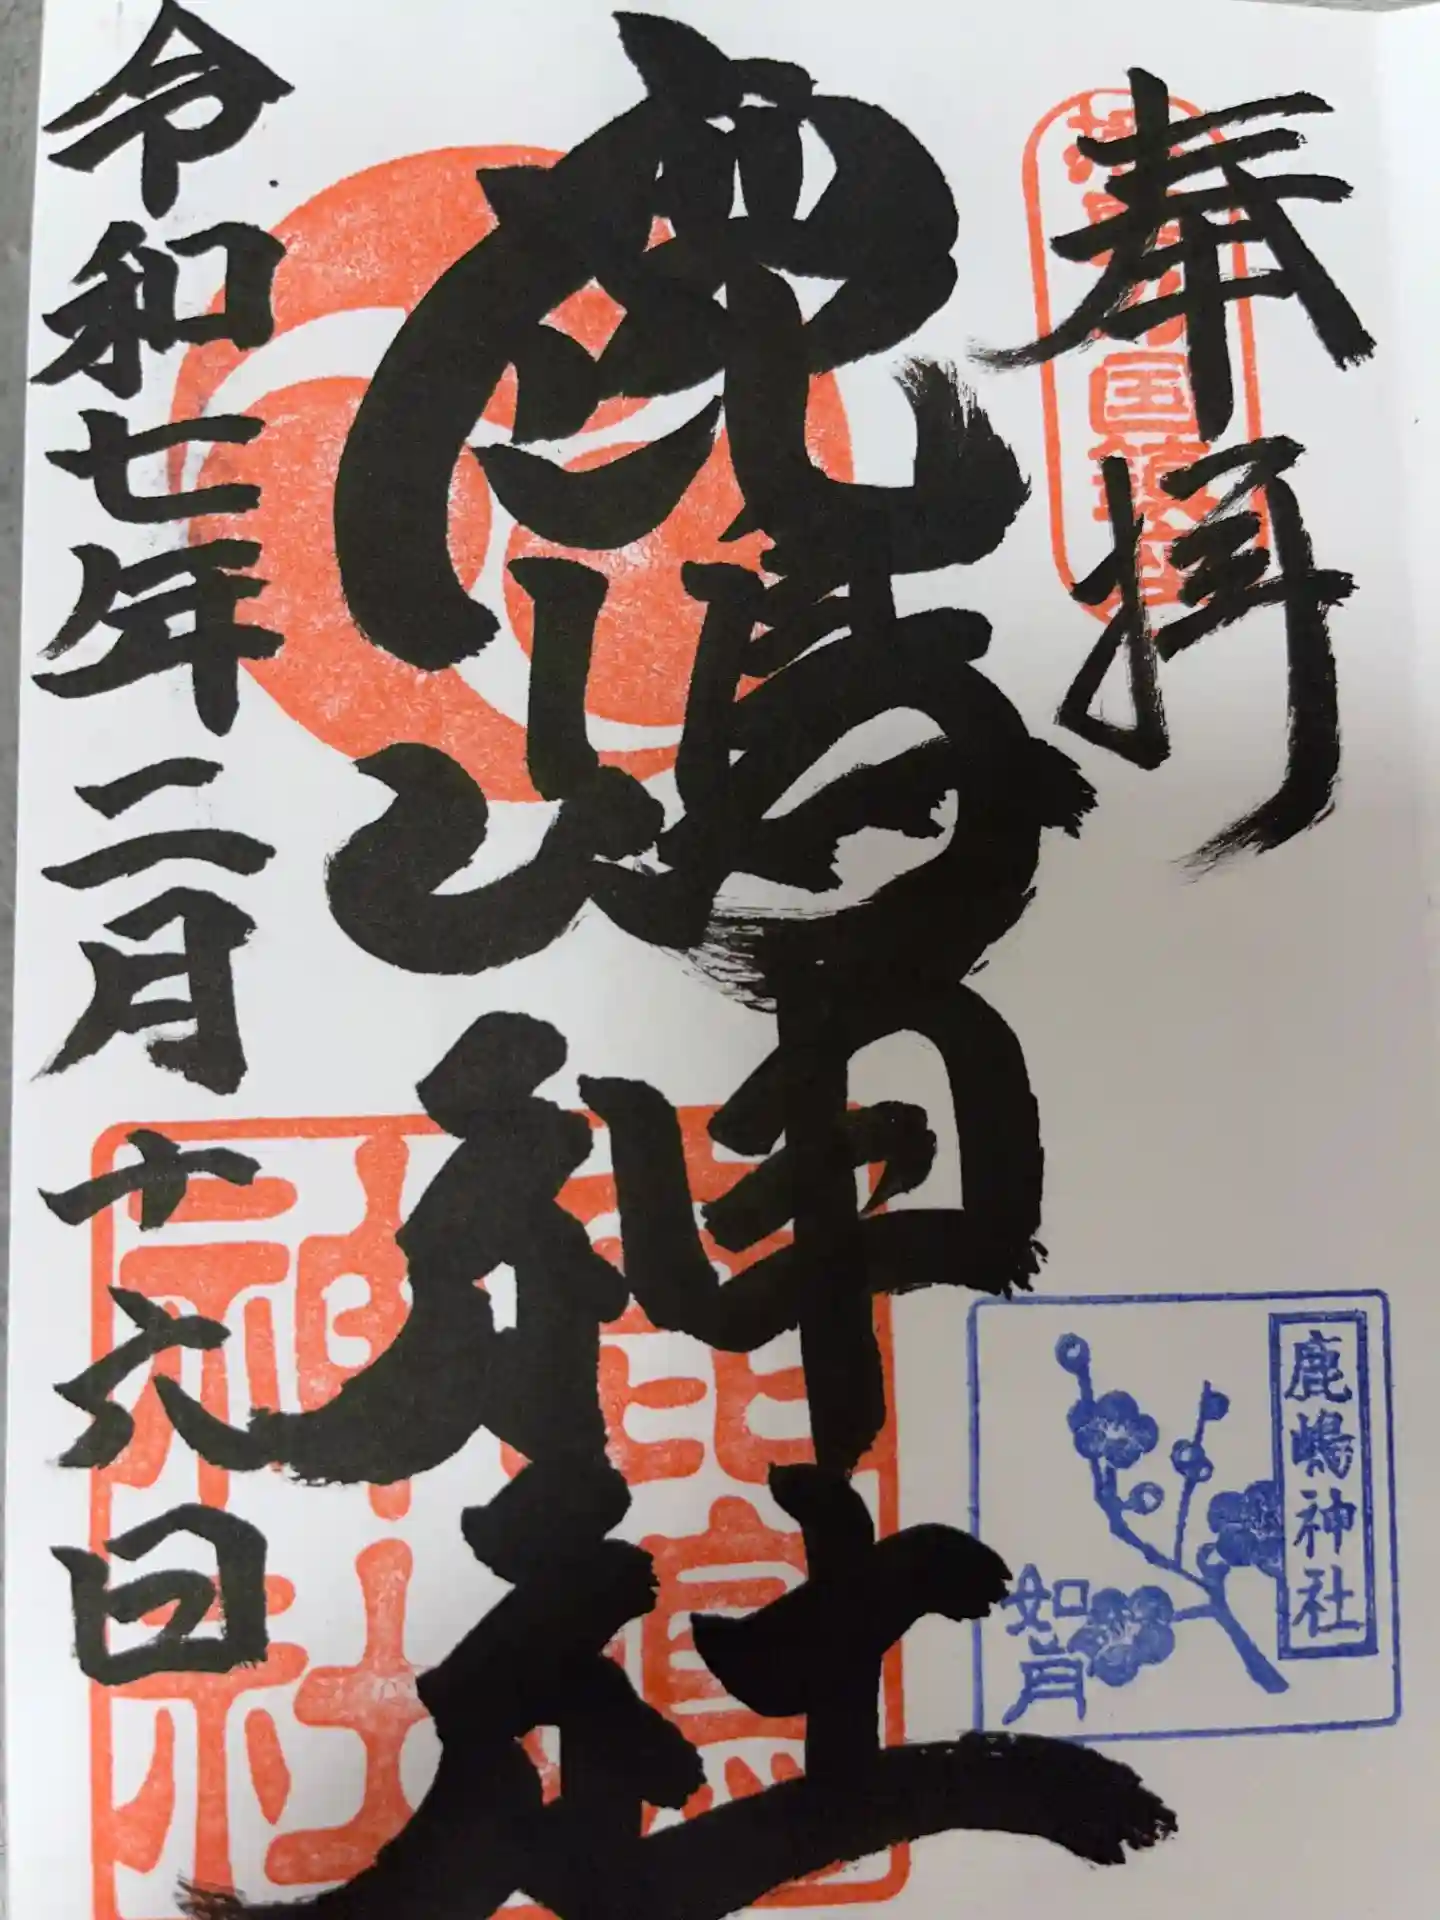 奉拝
鹿嶋神社
令和七年二月十六日
鹿嶋神社
如月
鹿嶋神社